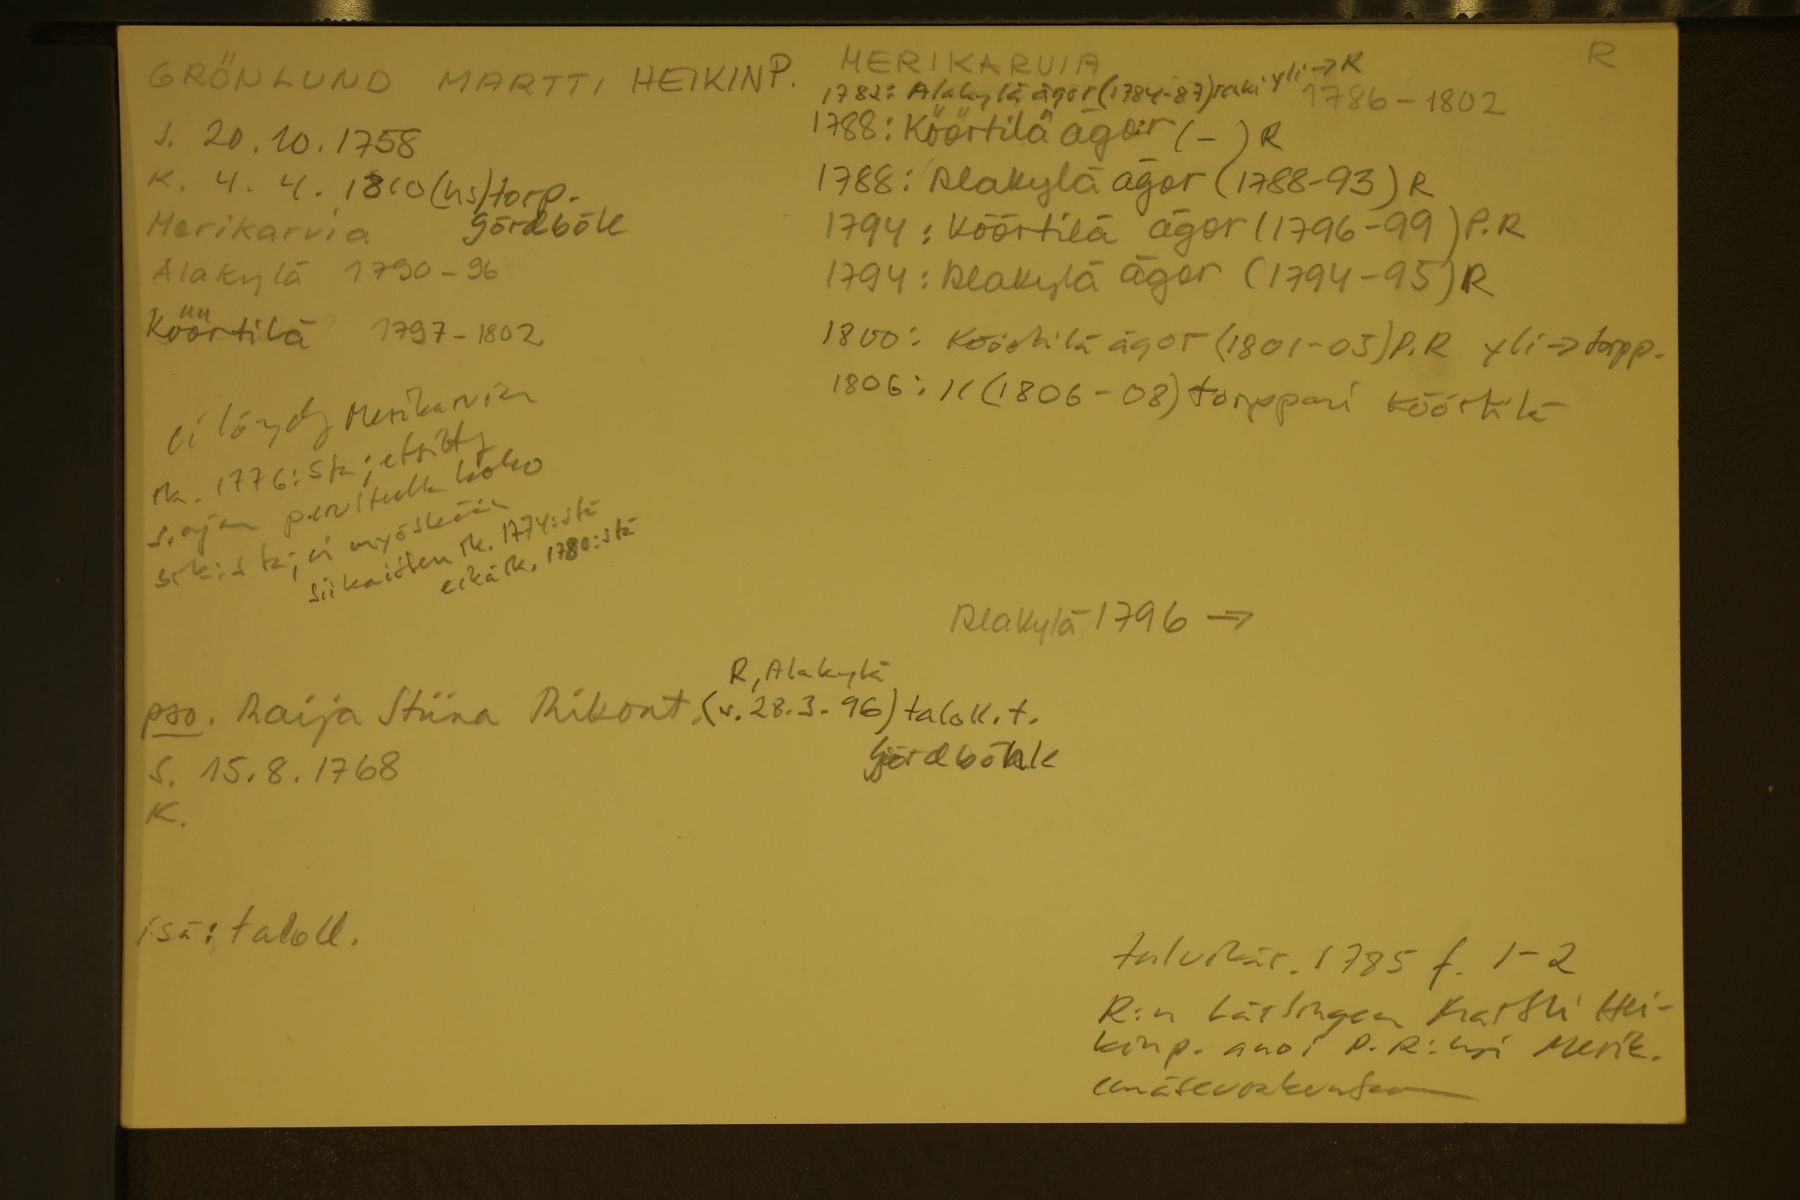 GRÖNLUND MARTTI HEIKINP.
s. 20.10.1758
k. 4.4.1810 (hs) torp.
Gördbök
Merikarvia
Alakylä 1790-96
Köörtilä 1797-1802
ei löydy Merikarvian
rk. 1776:sta; etsitty
s.ajan perusteella koko
srk:sta; ei myöskään
Siikaisten rk. 1774:stä
eikä rk. 1780:stä
pso. Maija Stiina Mikont. (v. 28.3.96) taloll.t.
R, Alakylä
Gördböhk
s. 15.8.1768
k.
isä: taloll.
MERIKARVIA
R
1782: Alakylä ägor (1784-87) renki yli → R
1786-1802
1788: Köörtilä ägor (-) R
1788: Alakylä ägor (1788-93) R
1794: Köörtilä ägor (1796-99) P.R
1794: Alakylä ägor (1794-95) R
1800: Köörtilä ägor (1801-05) P.R yli → torpp.
1806: (1806-08) torppari Köörtilä
Alakylä 1796 →
talvikär. 1785 f. 1-2
R:n Martti Hei-
kinp. anoi P.R:ksi Merik.
emäseurakuntaan